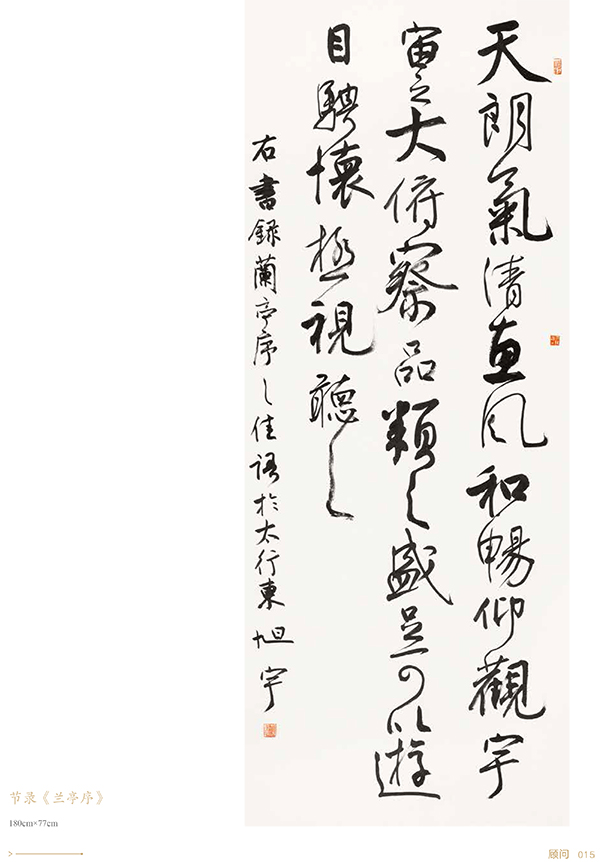 天朗氣清惠風和暢仰觀宇
宙之大俯察品類之盛足可以遊
目騁懷極視聽之
右書録蘭亭序之佳語於太行東旭宇
节录《兰亭序》
180cm×77cm
顾问 015